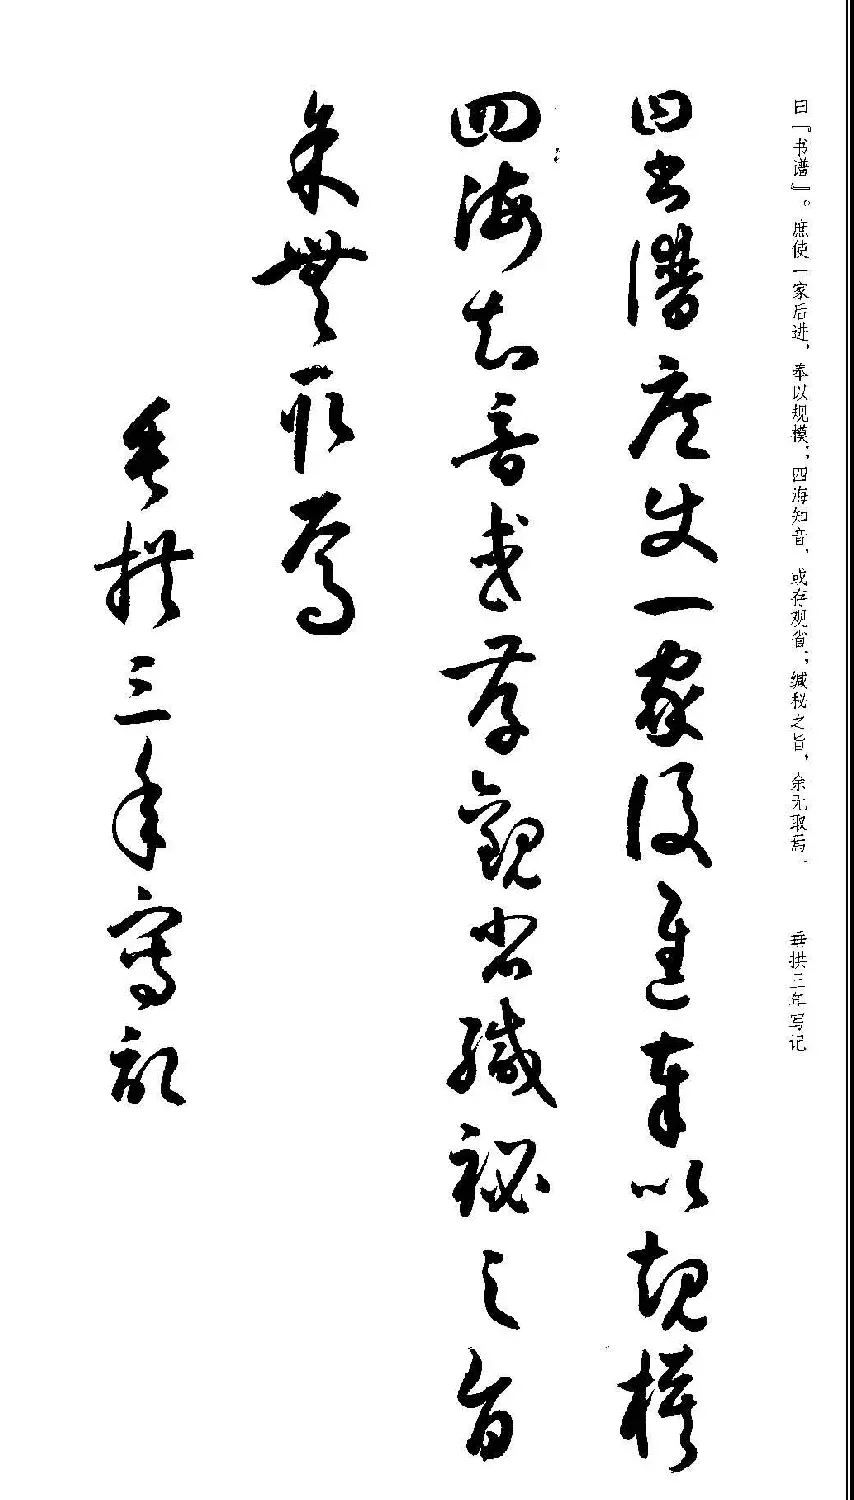 曰『书谱』。庶使一家后进，奉以规模；四海知音，或存观省；缄秘之旨，余无取焉。 垂拱三年写记
曰書譜庶使一家後進奉以規模
四海知音或存觀省緘祕之旨
余無取焉
垂拱三年寫記